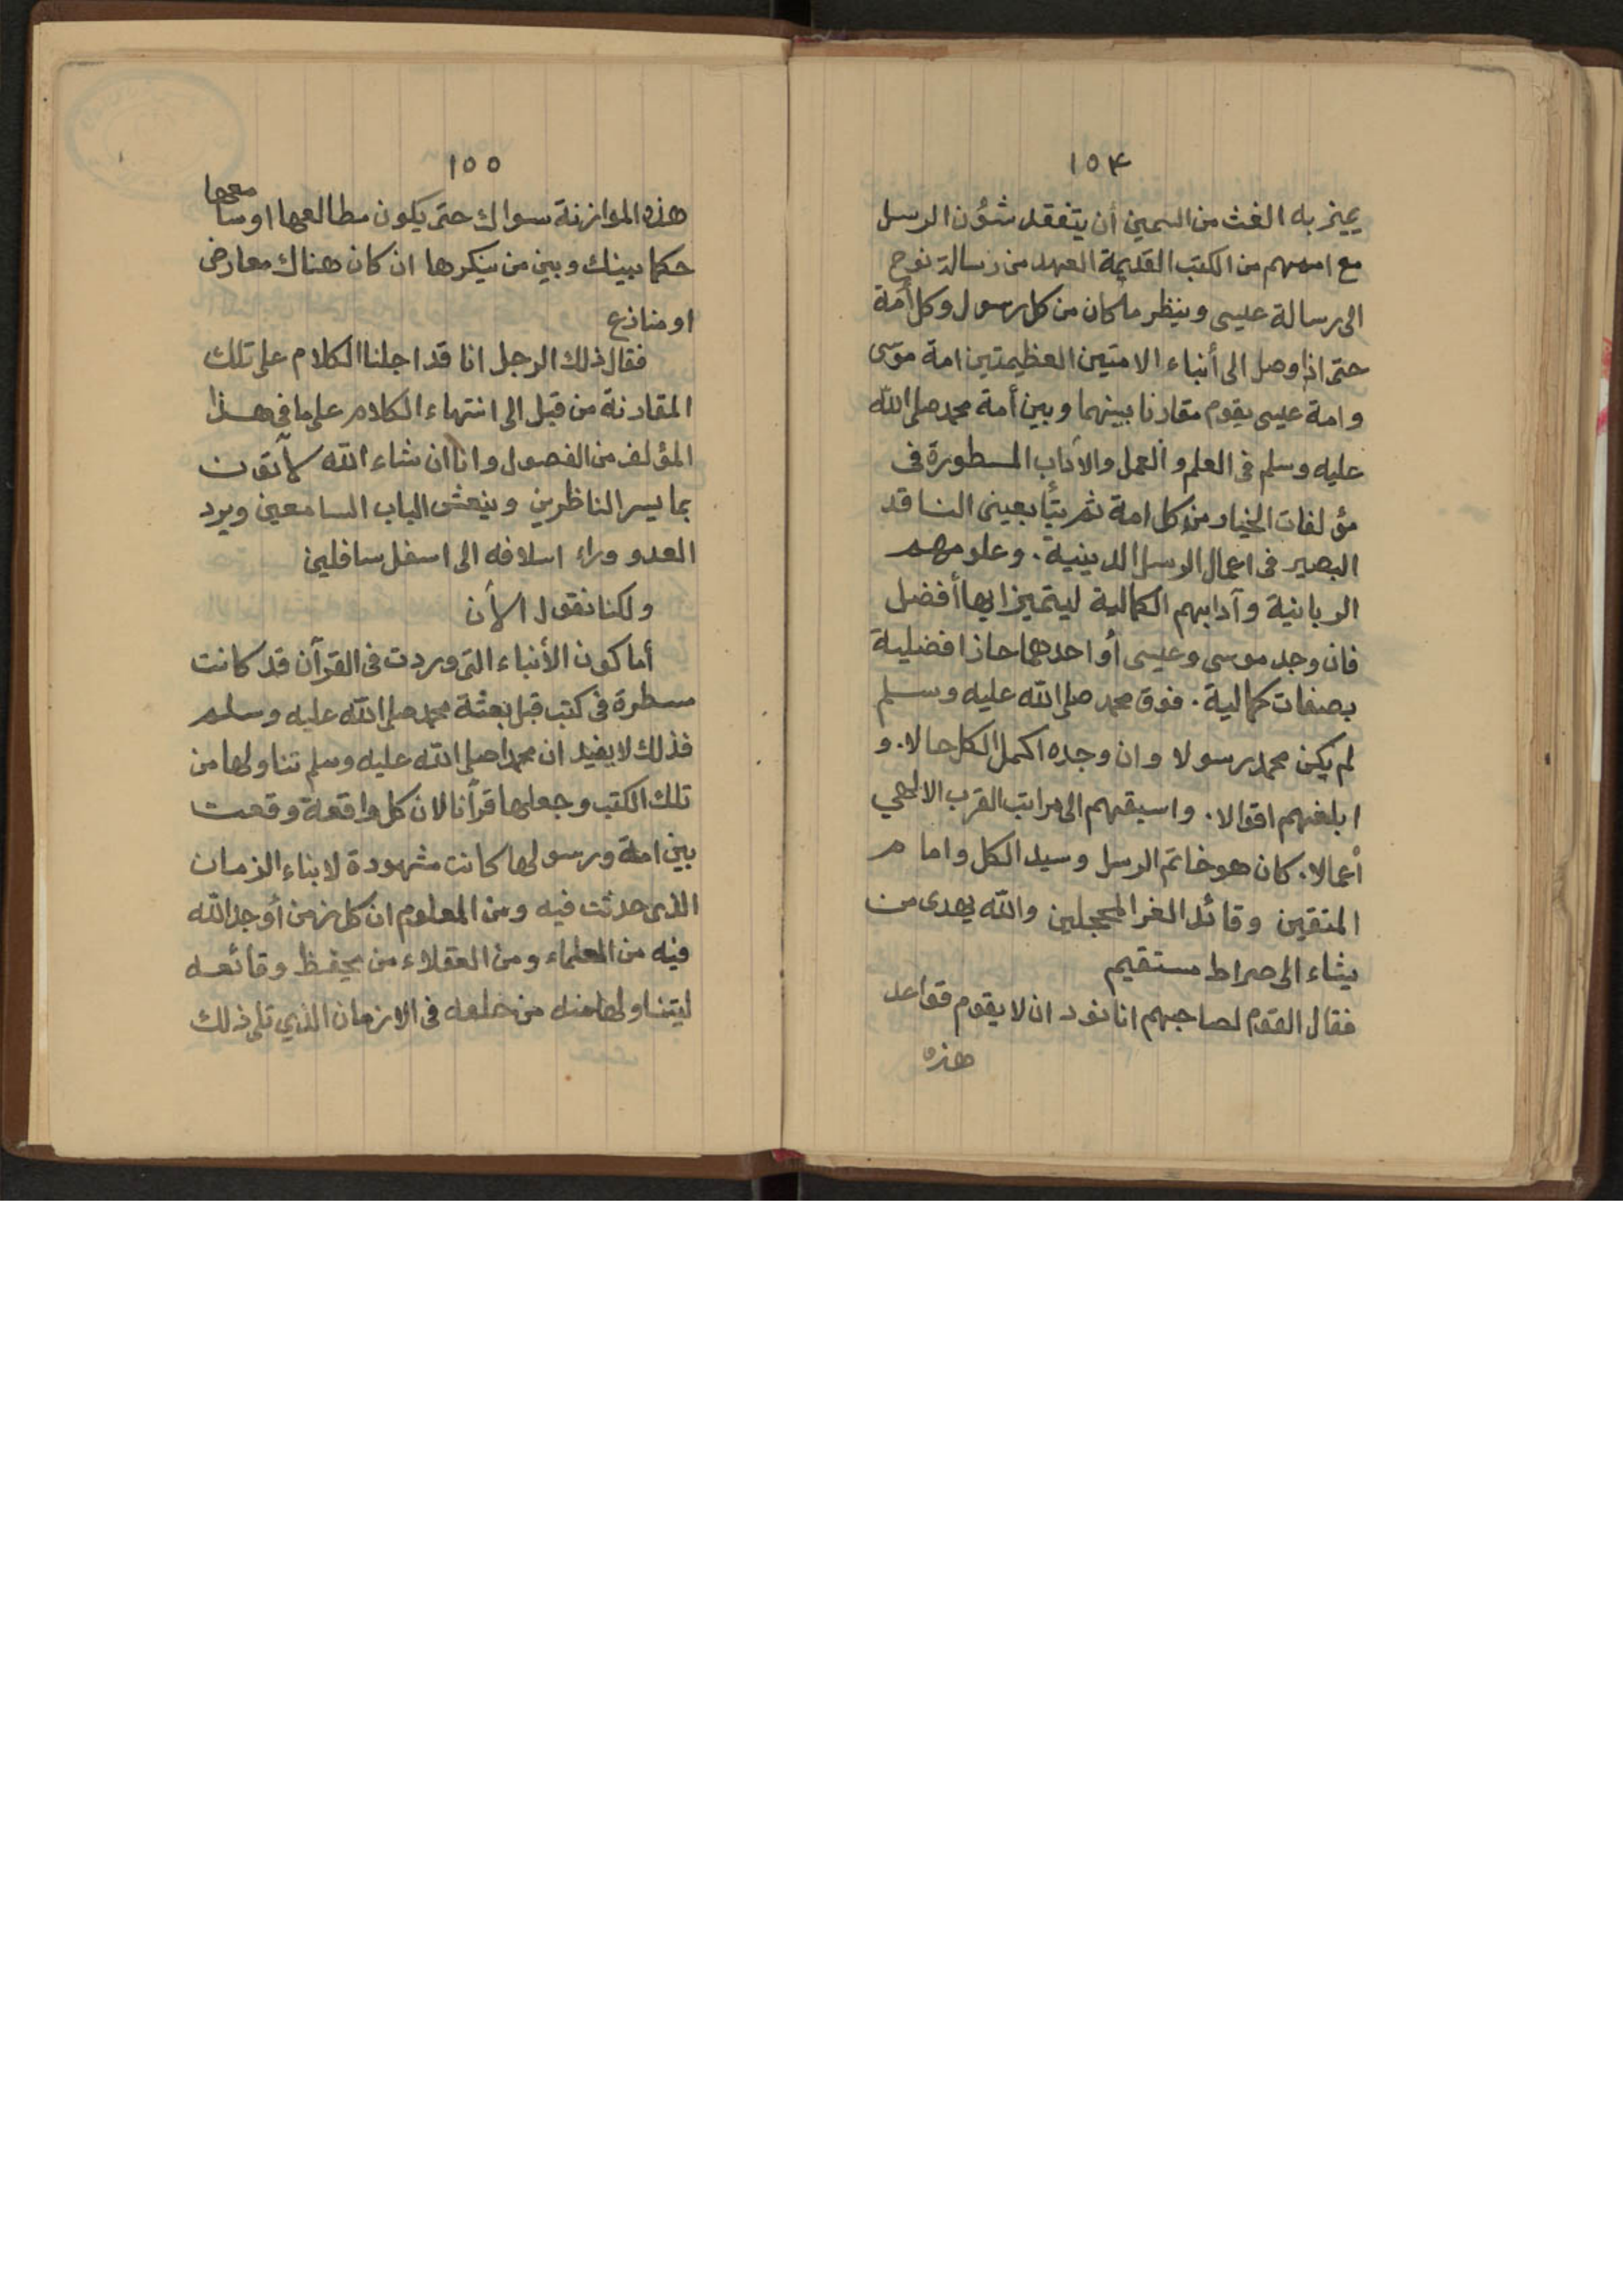 ١٥٤
يميز به الغث من السمين أن يتفقد شؤن الرسل
مع اممهم من الكتب القديمة العهد من رسالة نوح
الى رسالة عيسى وينظر ما كان من كل رسول وكل أمة
حتى اذا وصل الى أنباء الامتين العظيمتين امة موسى
وامة عيسى يقوم مقارنا بينهما وبين أمة محمد صلى الله
عليه وسلم فى العلم والعمل والآداب المسطورة فى
مؤلفات الخيار من كل امة ثم يتأ بعينى الناقد
البصير فى اعمال الرسل الدينية . وعلومهم
الربانية وآدابهم الكمالية ليتميز ايها أفضل
فان وجد موسى وعيسى أو احدهما حاز افضلية
بصفات كمالية . فوق محمد صلى الله عليه وسلم
لم يكن محمد رسولا وان وجده اكمل الكل حالا . و
ابلغهم اقوالا . واسبقهم الى مراتب القرب الالهي
أعمالا . كان هو خاتم الرسل وسيد الكل وامام
المتقين وقائد الغر المحجلين والله يهدى من
يشاء الى صراط مستقيم
فقال القوم لصاحبهم انا نود ان لا يقوم قواعد
هذه
١٥٥
هذه الموازنة سواك حتى يكون مطالعها او سامعها
حكما بينك وبين من ينكرها ان كان هناك معارض
او منازع
فقال ذلك الرجل انا قد اجلنا الكلام على تلك
المقارنة من قبل الى انتهاء الكلام على ما فى هذا
المؤلف من الفصول وانا ان شاء الله لآتون
بما يسر الناظرين وينعش الباب السامعين ويرد
العدو وراء اسلافه الى اسفل سافلين
ولكنا نقول الآن
أما كون الأنباء التى وردت فى القرآن قد كانت
مسطرة فى كتب قبل بعثة محمد صلى الله عليه وسلم
فذلك لا يفيد ان محمدا صلى الله عليه وسلم تناولها من
تلك الكتب وجعلها قرآنا لان كل واقعة وقعت
بين امة ورسولها كانت مشهودة لابناء الزمان
الذى حدثت فيه ومن المعلوم ان كل زمن أوجد الله
فيه من العلماء ومن العقلاء من يحفظ وقائعه
ليتناولها منه من خلفه فى الازمان الذي تلى ذلك